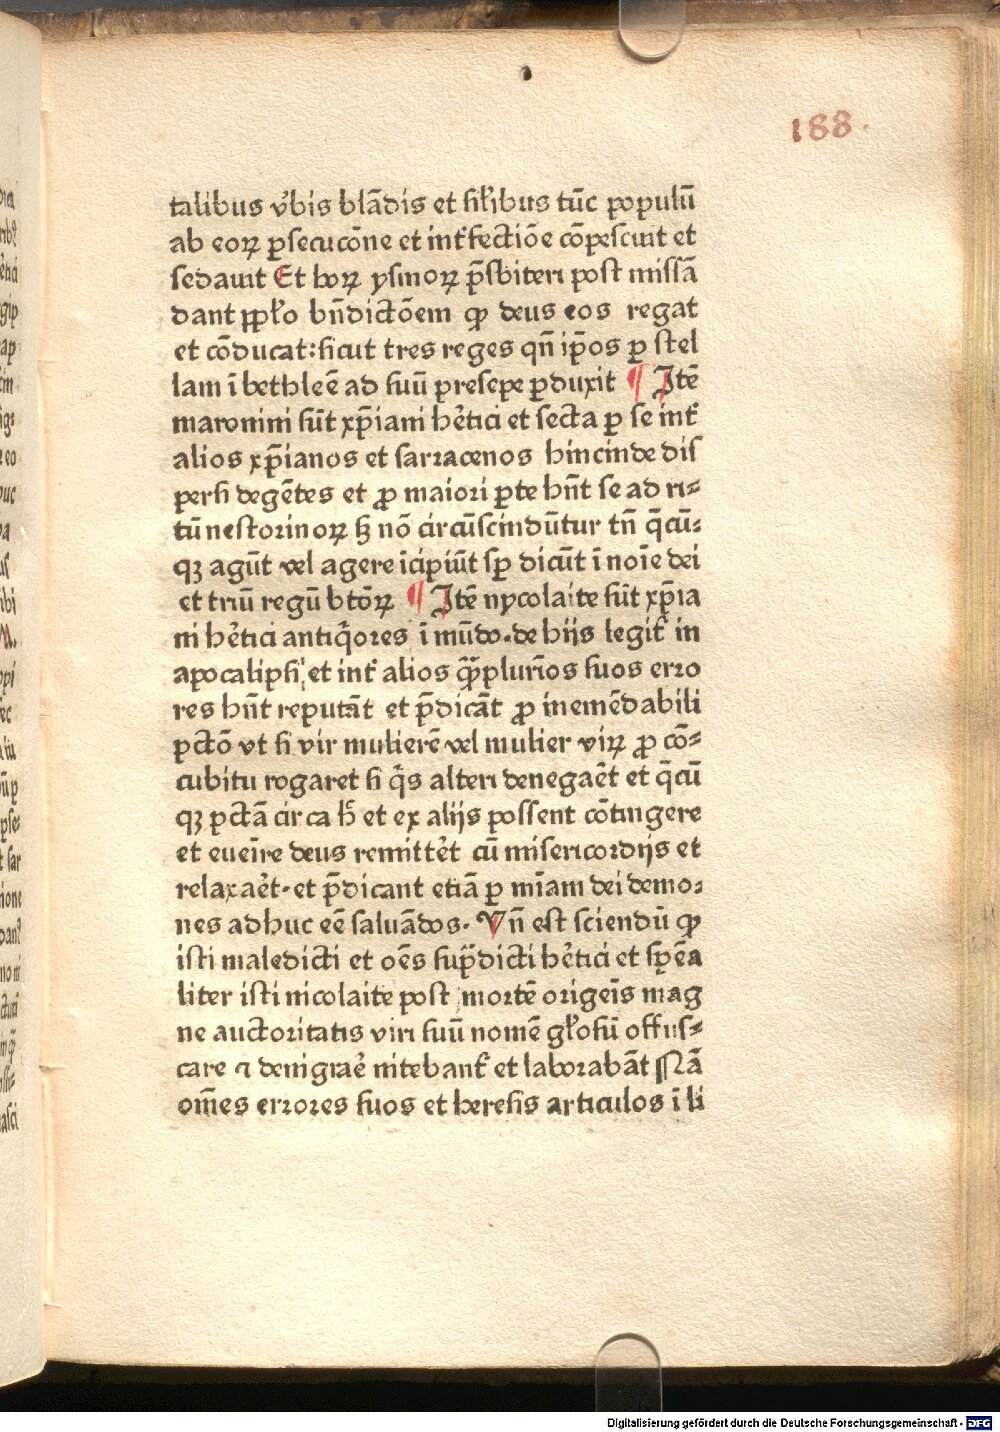 188.
talibus v̓bis blādis et sil̓ibus tūc populū
ab eoꝝ ꝑsecucōne et int̓fectiōe cōpescuit et
sedauit Et hoꝝ ysinoꝝ p̄sbiteri post missā
dant ppl̓o bn̄dictōem ꝙ deus eos regat
et cōducat: sicut tres reges qn̄ ip̄os ꝑ stel
lam ī bethleē ad suū presepe ꝑduxit ¶ Itē
maronini sūt xp̄iani he̓tici et secta ꝑ se int̓
alios xp̄ianos et sarracenos hincinde dis
persi degētes et ꝓ maiori ꝑte hn̄t se ad ri⸗
tū nestorinoꝝ sꝫ nō circūscindūtur tn̄ q̄cū⸗
qꝫ agūt vel agere īcipiūt sp̄ dicūt ī noīe dei
et triū regū btōꝝ ¶ Itē nycolaite sūt xp̄ia
ni he̓tici antiq̄ores ī mūdo. de hijs legit̓ in
apocalipsi et int̓ alios q̄ꝫplurīos suos erro
res hn̄t reputāt et p̄dicāt ꝓ inemēdabili
pctō vt si vir mulierē vel mulier viꝝ ꝓ cō⸗
cubitu rogaret si q̄s alteri denegae̓t et q̄cū
qꝫ pctā circa h̓ et ex alijs possent cōtingere
et eueīre deus remitte̓t cū misericordijs et
relaxae̓t. et p̄dicant etiā ꝑ mīam dei demo⸗
nes adhuc eē saluādos. Vn̄ est sciendū ꝙ
isti maledicti et oēs sup̄dicti he̓tici et sp̄ēa
liter isti nicolaite post mortē origeīs mag
ne auctoritatis viri suū nomē gl̓osū offus⸗
care ⁊ denigrae̓ nitebant̓ et laborabāt Nā
om̄es errores suos et heresis articulos ī li
Digitalisierung gefördert durch die Deutsche Forschungsgemeinschaft - DFG